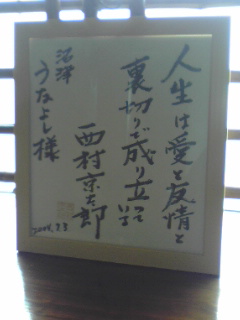 人生は愛と友情と
裏切りで成り立っている
西村京太郎
沼津
うなよし様
2004.7.3